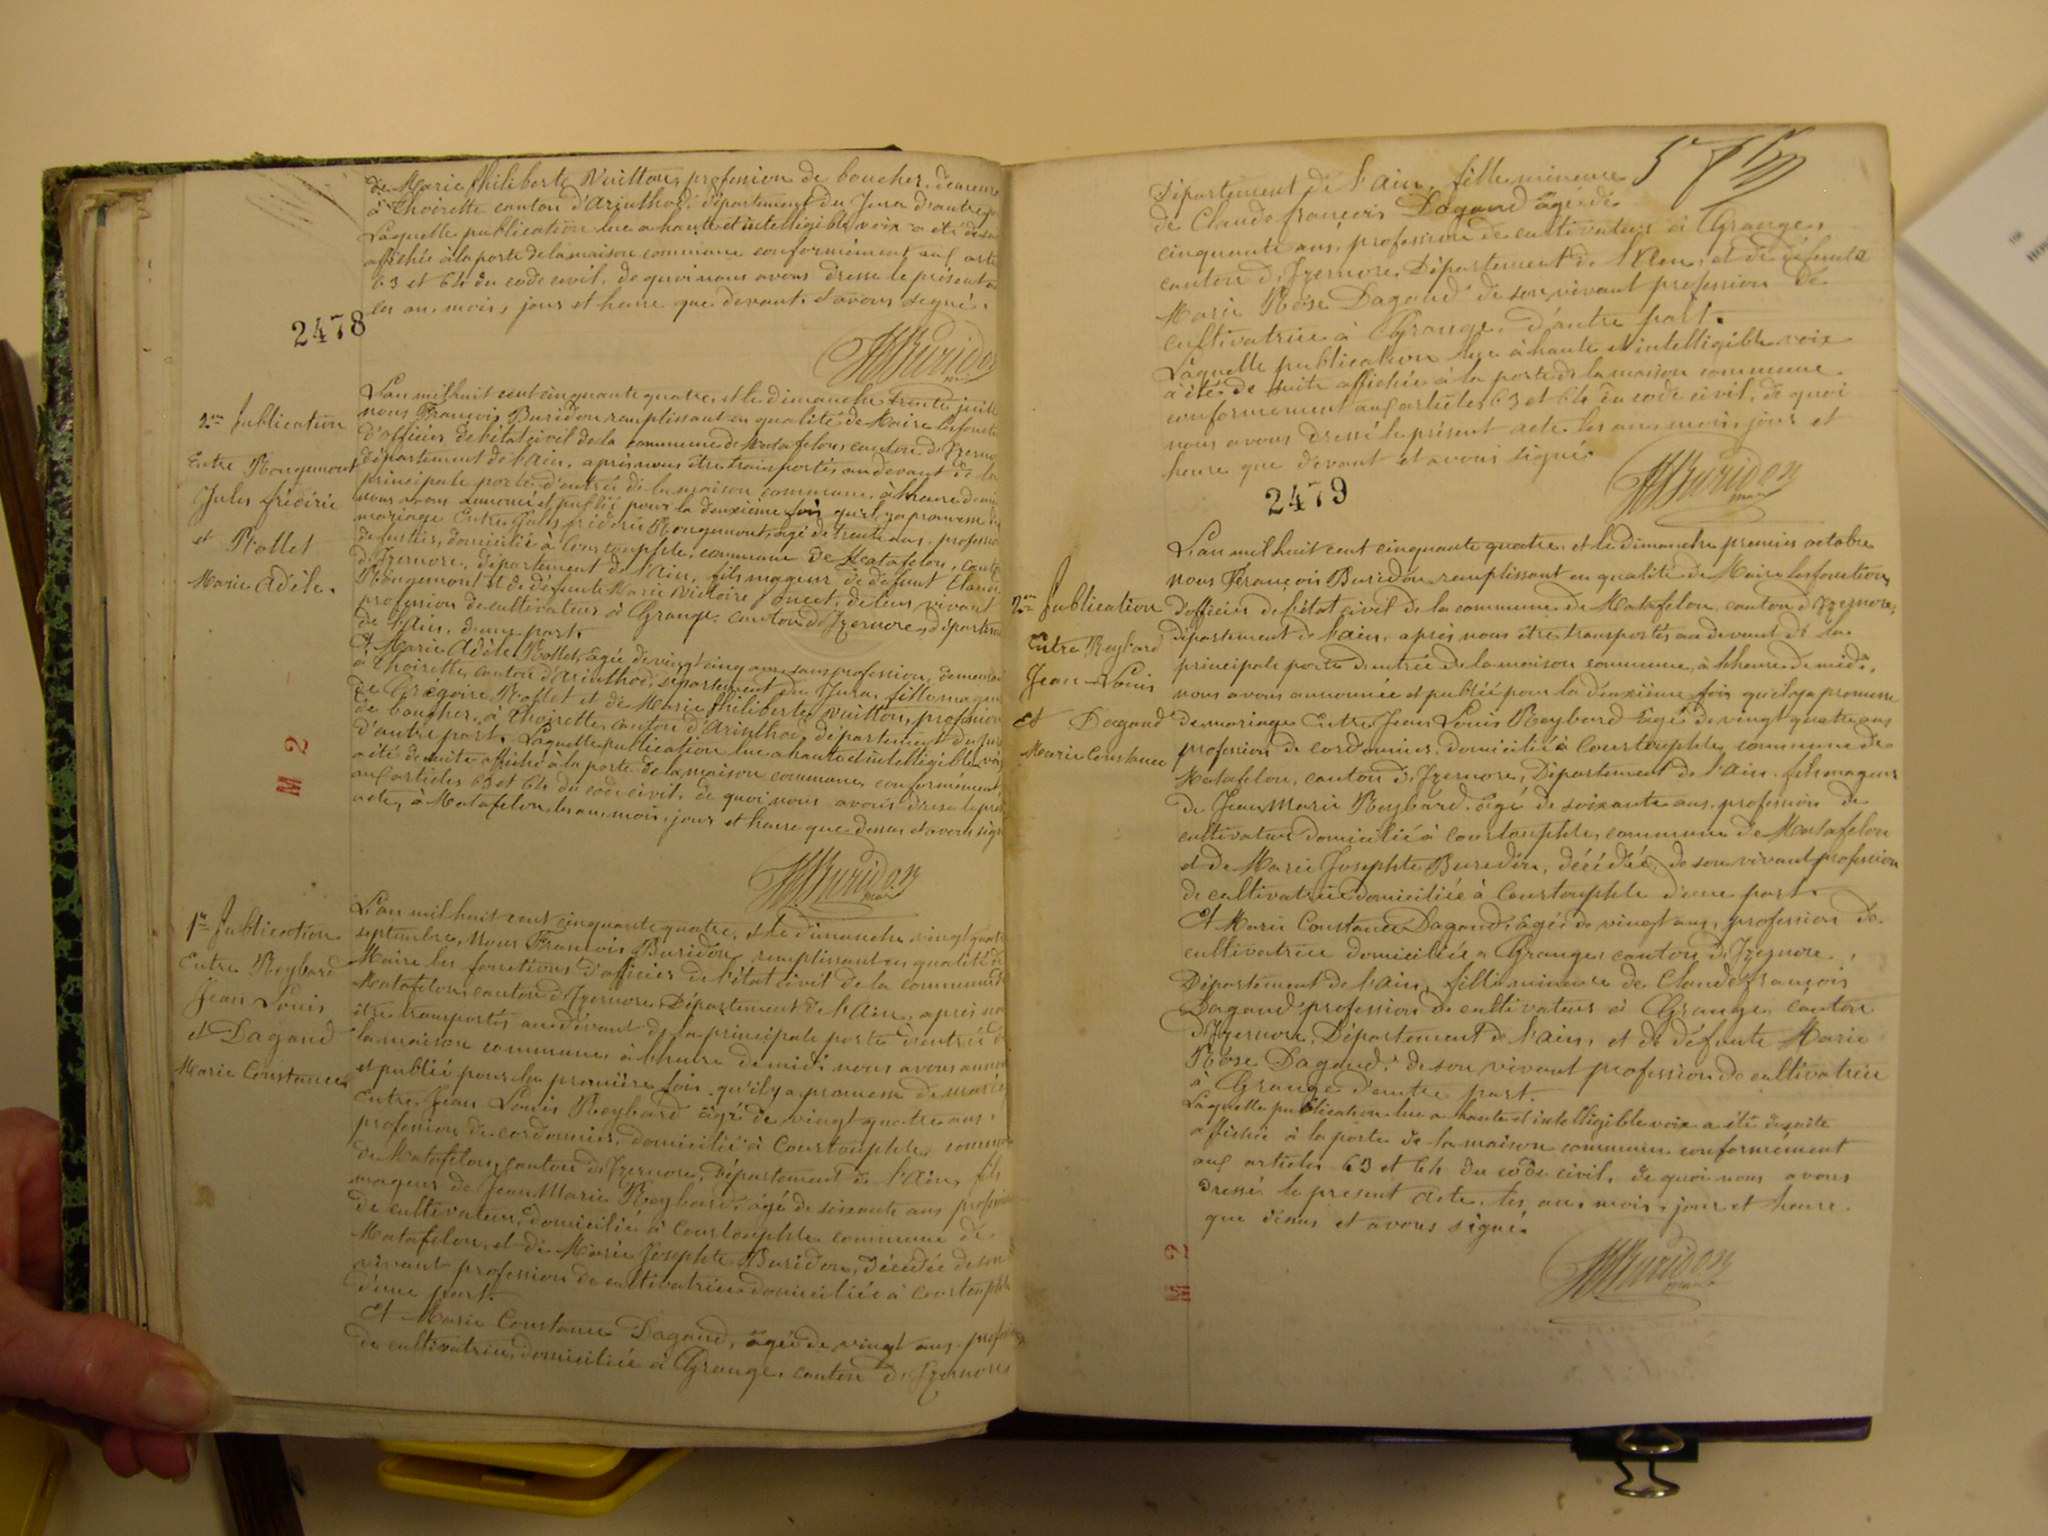 de Marie Philiberte Vuitton, profession de boucher, demeurant
à Thoirette canton d'Arinthod, département du Jura d'autre part
Laquelle publication lue a haute et intelligible voix a été de suite
affichée à la porte de la maison commune conformément aux arts
63 et 64 du code civil, de quoi nous avons dressé le présent acte
les an, mois, jour et heure que devant et avons signé.
2478
Buridon
maire
2me Publication
Entre Rougemont
Jules fréderic
et Rollet
Marie Adèle.
L'an mil huit cent cinquante quatre, et le dimanche trente juill
nous François Buridon remplissant en qualité de Maire les foncti
d'officier de l'état civil de la commune de Matafelon, canton d'Izerno
département de l'ain, après nous être transportés au devant de la
principale porte d'entrée de la maison commune, à l'heure de mi
nous avons annoncé et publié pour la deuxième fois qu'il y a promesse de
mariage Entre Jules fréderic Rougemont, âgé de trente ans, professio
domicilié à Courtouphle, commune de Matafelon, canto
d'Izernore, département de l'Ain, fils majeur de défunt Claude
Rougemont et de défunte Marie Victoire de leur vivant
profession de cultivateur à Grange, canton d'Izernore, départeme
de l'Ain, d'une part.
Et Marie Adèle Rollet, âgée de vingt cinq ans, sans profession, demeurant
à Thoirette, canton d'Arinthod, département du Jura, fille majeure
de Grégoire Rollet et de Marie Philiberte Vuitton, profession
de boucher, à Thoirette, canton d'Arinthod, département du Jura
d'autre part. Laquelle publication lue a haute et intelligible voix
a été de suite affichée à la porte de la maison commune, conformément
aux articles 63 et 64 du code civil, de quoi nous avons dressé le prés
acte, à Matafelon, les an, mois, jour et heure que dessus et avons sign
M 2
Buridon
maire
1re Publication
Entre Reybard
Jean Louis
et Dagand
Marie Constance
L'an mil huit cent cinquante quatre, et le dimanche vingt quatre
septembre, Nous François Buridon, remplissant en qualité de
Maire les fonctions d'officier de l'état civil de la commune de
Matafelon, canton d'Izernore, Département de l'Ain, après nous
être transportés au devant de la principale porte d'entrée de
la maison commune, à l'heure de midi, nous avons annoncé
et publié pour la première fois qu'il y a promesse de mariage
Entre Jean Louis Reybard âgé de vingt quatre ans,
profession de cordonnier, domicilié à Courtouphle, commune
de Matafelon, canton d'Izernore, Département de l'Ain, fils
majeur de Jean Marie Reybard, âgé de soixante ans profession
de cultivateur, domicilié à Courtouphle commune de
Matafelon, et de Marie Josephte Buridon, décédée de son
vivant profession de cultivatrice domiciliée à Courtouphle
d'une part.
Et Marie Constance Dagand, âgée de vingt ans, profession
de cultivatrice, domiciliée à Grange, canton d'Izernore
57
Département de l'Ain, fille mineure
de Claude françois Dagand âgé de
cinquante ans, profession de cultivateur à Grange,
canton d'Izernore, Département de l'Ain, et de défunte
Marie Rose Dagand de son vivant profession de
cultivatrice à Grange, d'autre part.
Laquelle publication lue à haute et intelligible voix
a été de suite affichée à la porte de la maison commune
conformement aux articles 63 et 64 du code civil, de quoi
nous avons dressé le présent acte les an, mois, jour et
heure que devant et avons signé.
Buridon
maire
2479
2me Publication
Entre Reybard
Jean-Louis
Et Dagand
Marie Constance
L'an mil huit cent cinquante quatre, et le dimanche premier octobre
nous François Buridon remplissant en qualité de Maire les fonctions
d'officier de l'état civil de la commune de Matafelon, canton d'Izernore,
département de l'ain, après nous être transportés au devant de la
principale porte d'entrée de la maison commune, à l'heure de midi,
nous avons annoncé et publié pour la deuxième fois qu'il y a promesse
de mariage Entre Jean Louis Reybard âgé de vingt quatre ans
profession de cordonnier, domicilié à Courtouphle, commune de
Matafelon, canton d'Izernore, Département de l'Ain, fils majeur
de Jean Marie Reybard, âgé de soixante ans, profession de
cultivateur domicilié à Courtouphle, commune de Matafelon
et de Marie Josephte Buridon, décédée, de son vivant profession
de cultivatrice domiciliée à Courtouphle d'une part.
Et Marie Constance Dagand, âgée de vingt ans, profession de
cultivatrice domiciliée a Grange, canton d'Izernore,
Département de l'ain, fille mineure de Claude françois
Dagand profession de cultivateur à Grange, canton
d'Izernore, Département de l'ain, et de défunte Marie
Rose Dagand, de son vivant profession de cultivatrice
à Grange d'autre part.
Laquelle publication lue a haute et intelligible voix a été de suite
affichée à la porte de la maison commune conformément
aux articles 63 et 64 du code civil, de quoi nous avons
dressé le present acte, les an, mois, jour et heure
que dessus et avons signé.
M 2
Buridon
maire